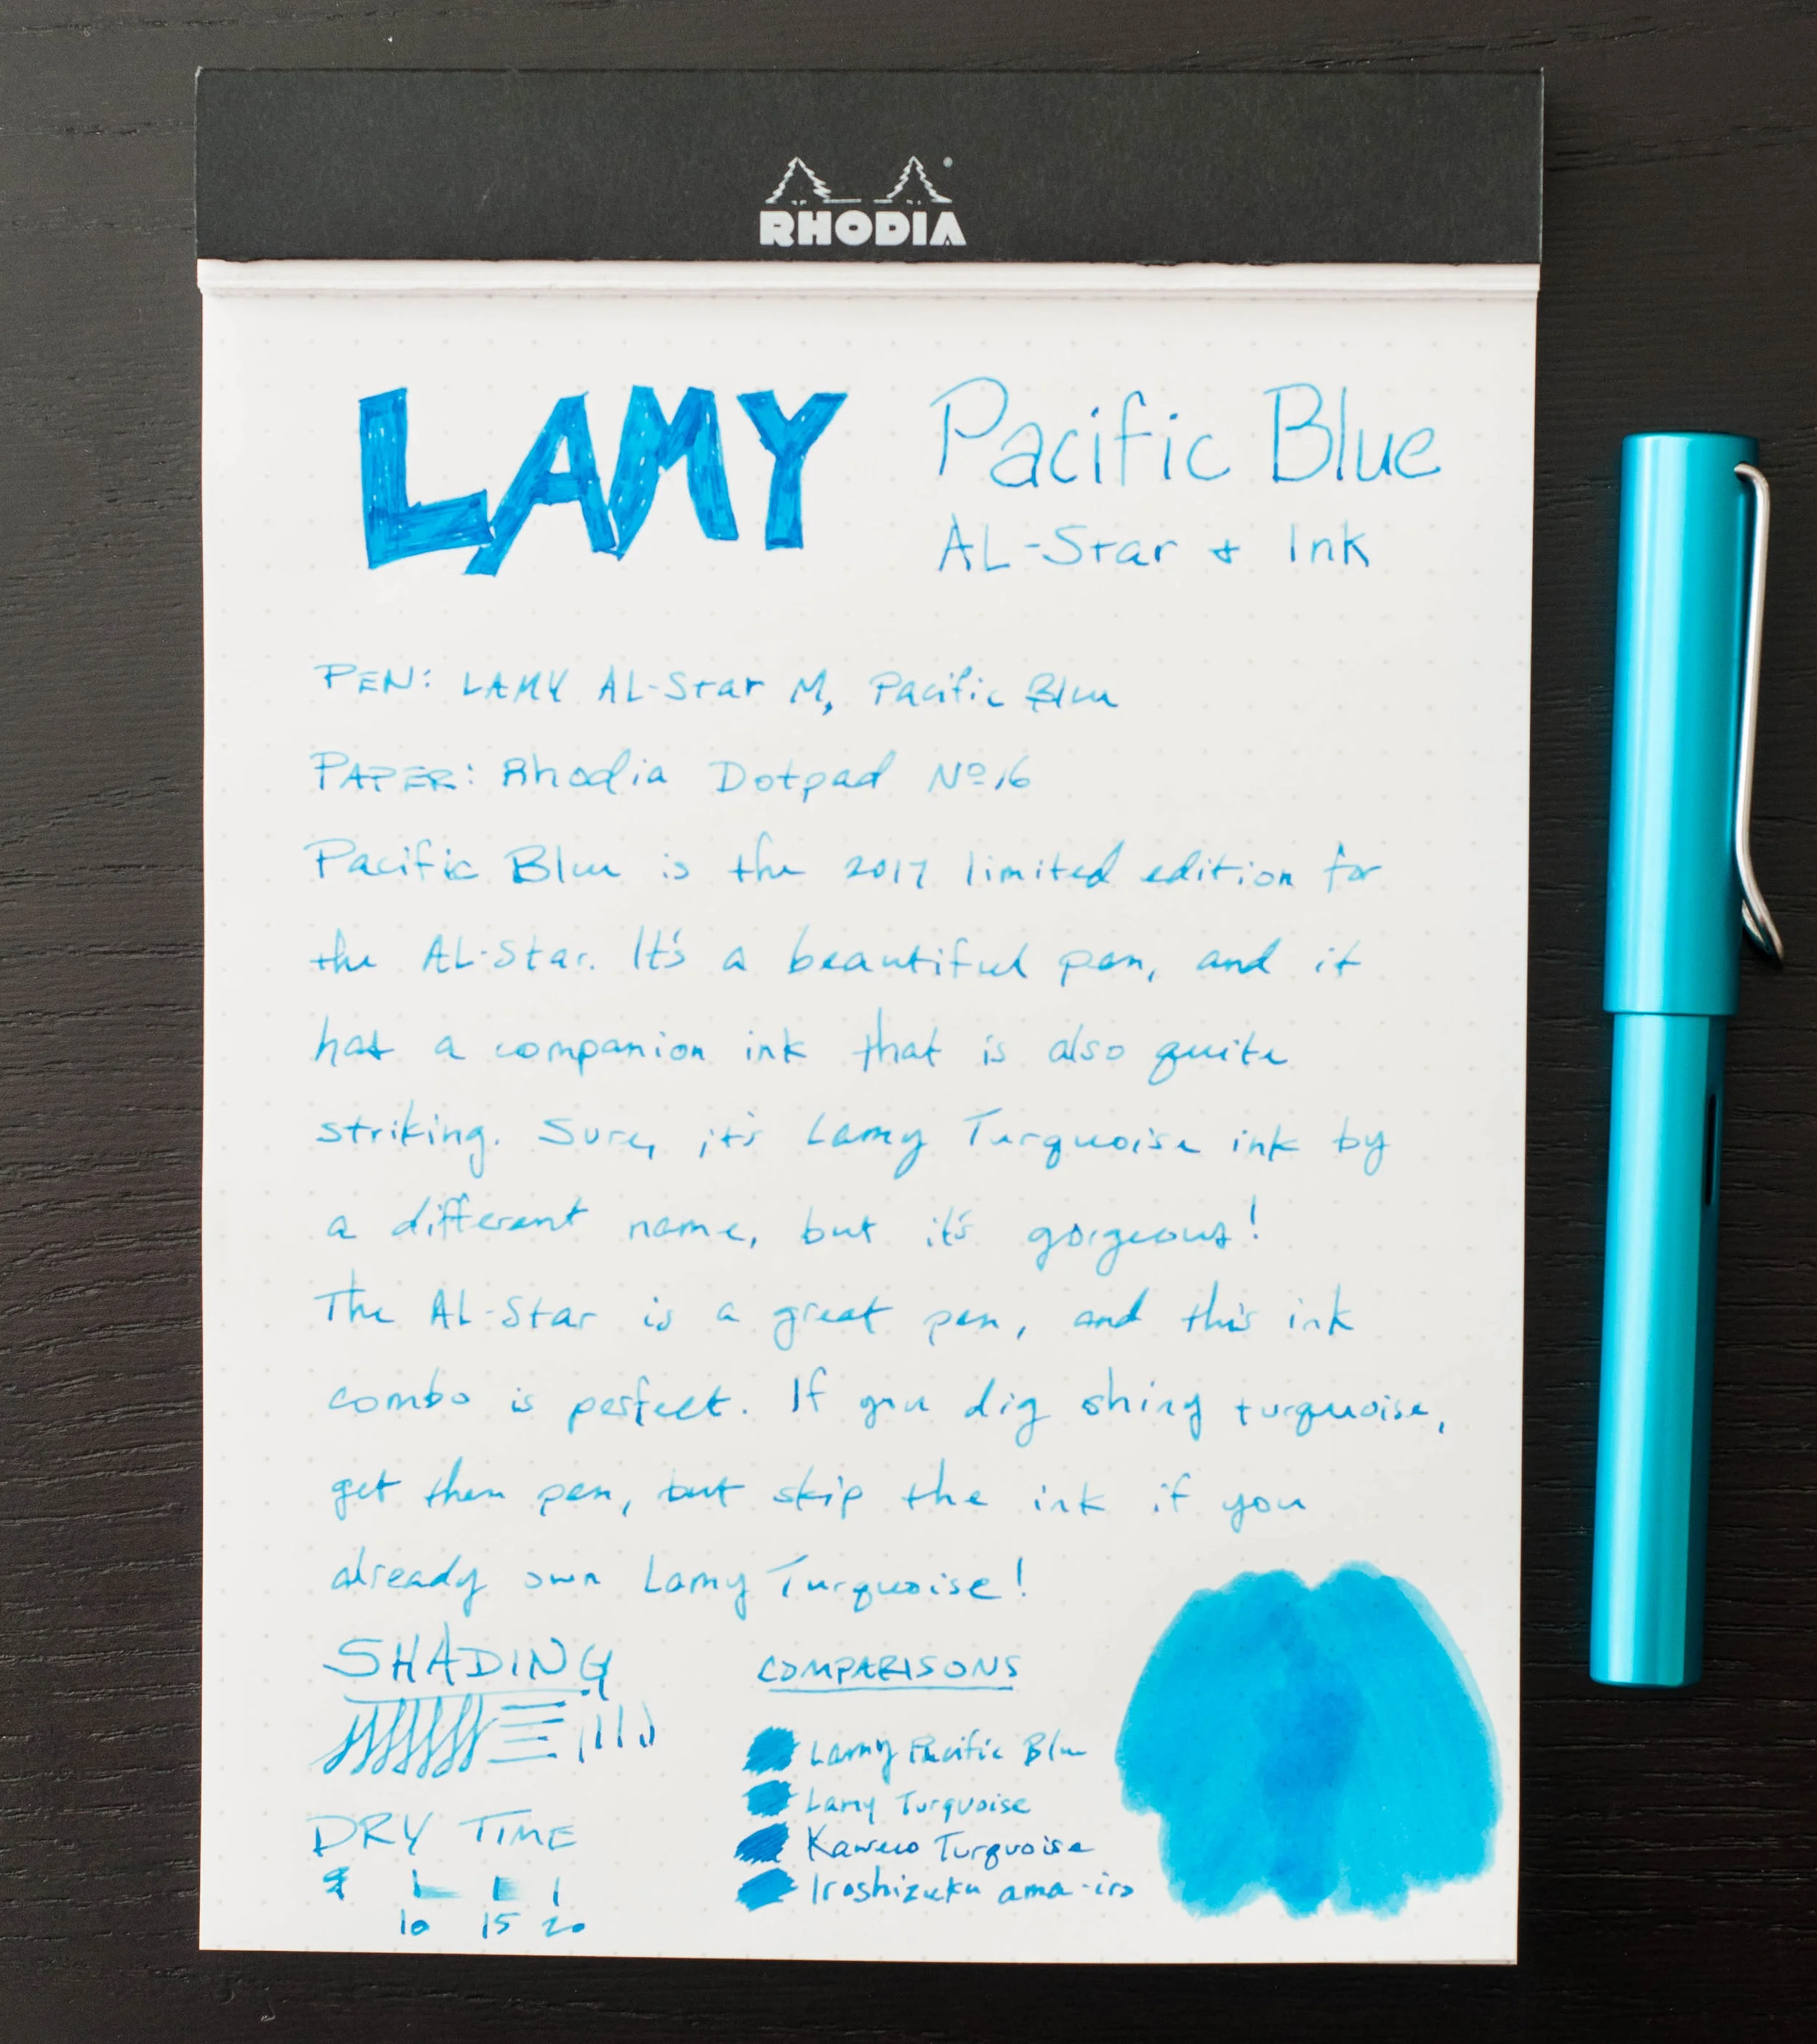 RHODIA
LAMY Pacific Blue
AL-Star + Ink
PEN: LAMY AL-Star M, Pacific Blue
PAPER: Rhodia Dotpad Nº16
Pacific Blue is the 2017 limited edition for
the AL-Star. It's a beautiful pen, and it
has a companion ink that is also quite
striking. Sure, it's Lamy Turquoise ink by
a different name, but it's gorgeous!
The AL-Star is a great pen, and this ink
combo is perfect. If you dig shiny turquoise,
get then pen, but skip the ink if you
already own Lamy Turquoise!
SHADING
DRY TIME
10 15 20
COMPARISONS
Lamy Pacific Blue
Lamy Turquoise
Kaweco Turquoise
Iroshizuku ama-iro